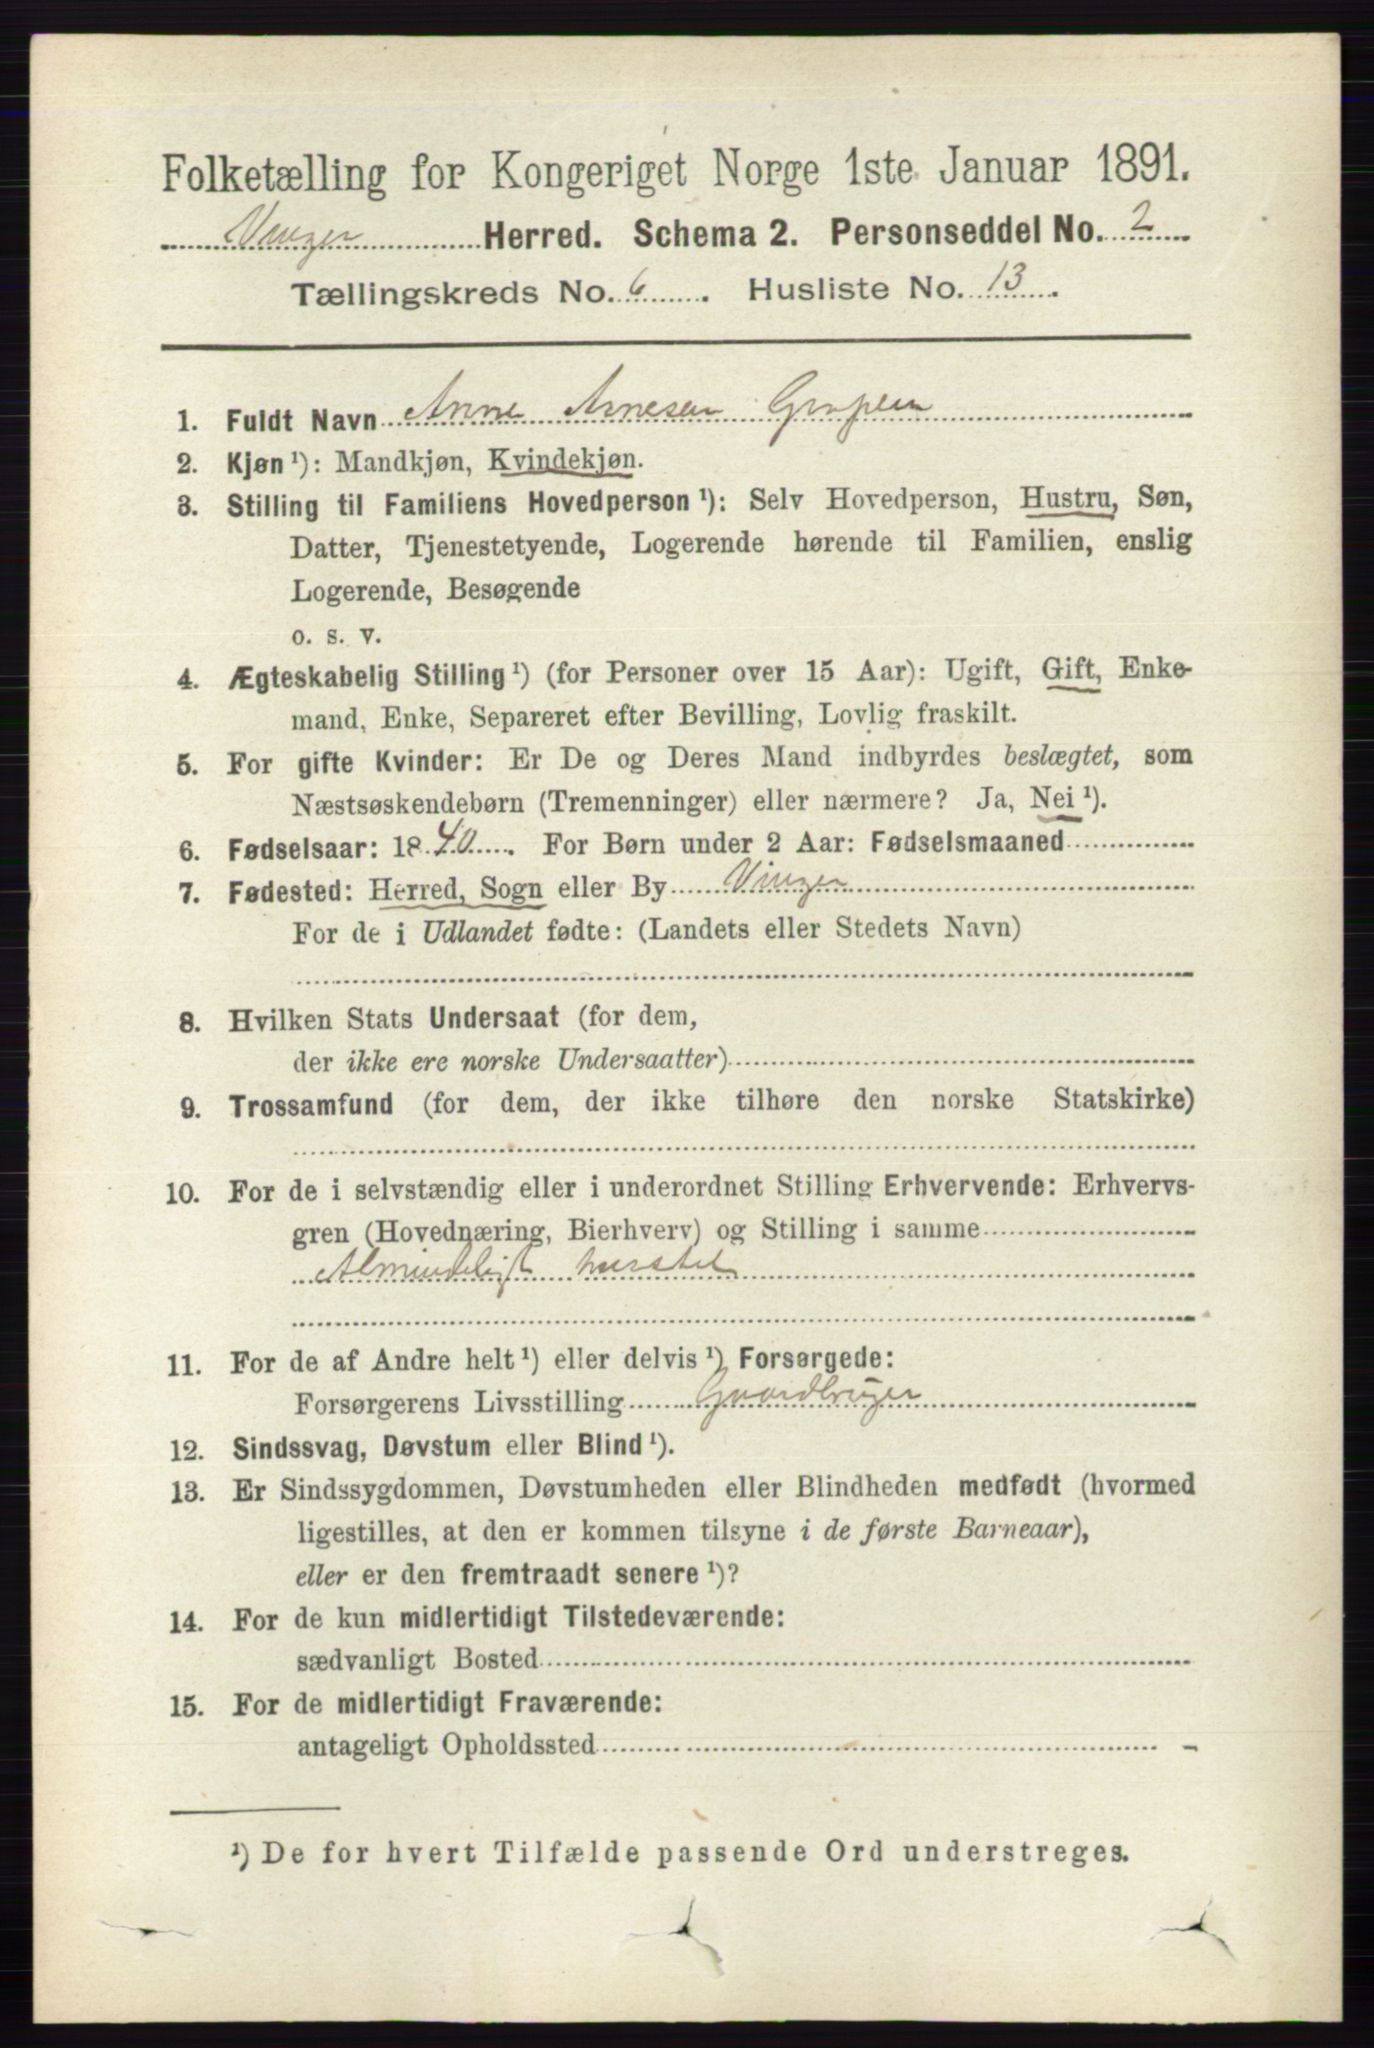 Folketælling for Kongeriget Norge 1ste Januar 1891.
Vinger Herred. Schema 2. Personseddel No. 2
Tællingskreds No. 6. Husliste No. 13.
1. Fuldt Navn Anne Arnesen
2. Kjøn ¹): Mandkjøn, Kvindekjøn.
3. Stilling til Familiens Hovedperson ¹): Selv Hovedperson, Hustru, Søn,
Datter, Tjenestetyende, Logerende hørende til Familien, enslig
Logerende, Besøgende
o. s. v.
4. Ægteskabelig Stilling ¹) (for Personer over 15 Aar): Ugift, Gift, Enke-
mand, Enke, Separeret efter Bevilling, Lovlig fraskilt.
5. For gifte Kvinder: Er De og Deres Mand indbyrdes beslægtet, som
Næstsøskendebørn (Tremenninger) eller nærmere? Ja, Nei ¹).
6. Fødselsaar: 1840. For Børn under 2 Aar: Fødselsmaaned
7. Fødested: Herred, Sogn eller By Vinger
For de i Udlandet fødte: (Landets eller Stedets Navn)
8. Hvilken Stats Undersaat (for dem,
der ikke ere norske Undersaatter)
9. Trossamfund (for dem, der ikke tilhøre den norske Statskirke)
10. For de i selvstændig eller i underordnet Stilling Erhvervende: Erhvervs-
gren (Hovednæring, Bierhverv) og Stilling i samme
Almindeligt husstel
11. For de af Andre helt ¹) eller delvis ¹) Forsørgede:
Forsørgerens Livsstilling Gaardbruger
12. Sindssvag, Døvstum eller Blind ¹).
13. Er Sindssygdommen, Døvstumheden eller Blindheden medfødt (hvormed
ligestilles, at den er kommen tilsyne i de første Barneaar),
eller er den fremtraadt senere ¹)?
14. For de kun midlertidigt Tilstedeværende:
sædvanligt Bosted
15. For de midlertidigt Fraværende:
antageligt Opholdssted
¹) De for hvert Tilfælde passende Ord understreges.